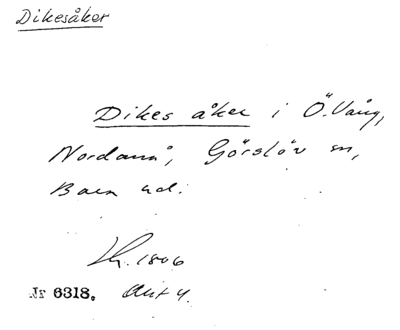 Dikesåker
Dikes åker i Ö. Vång,
Nordanå, Görslöv sn,
Bara hd.
1806
Jr 6318. Akt 4.